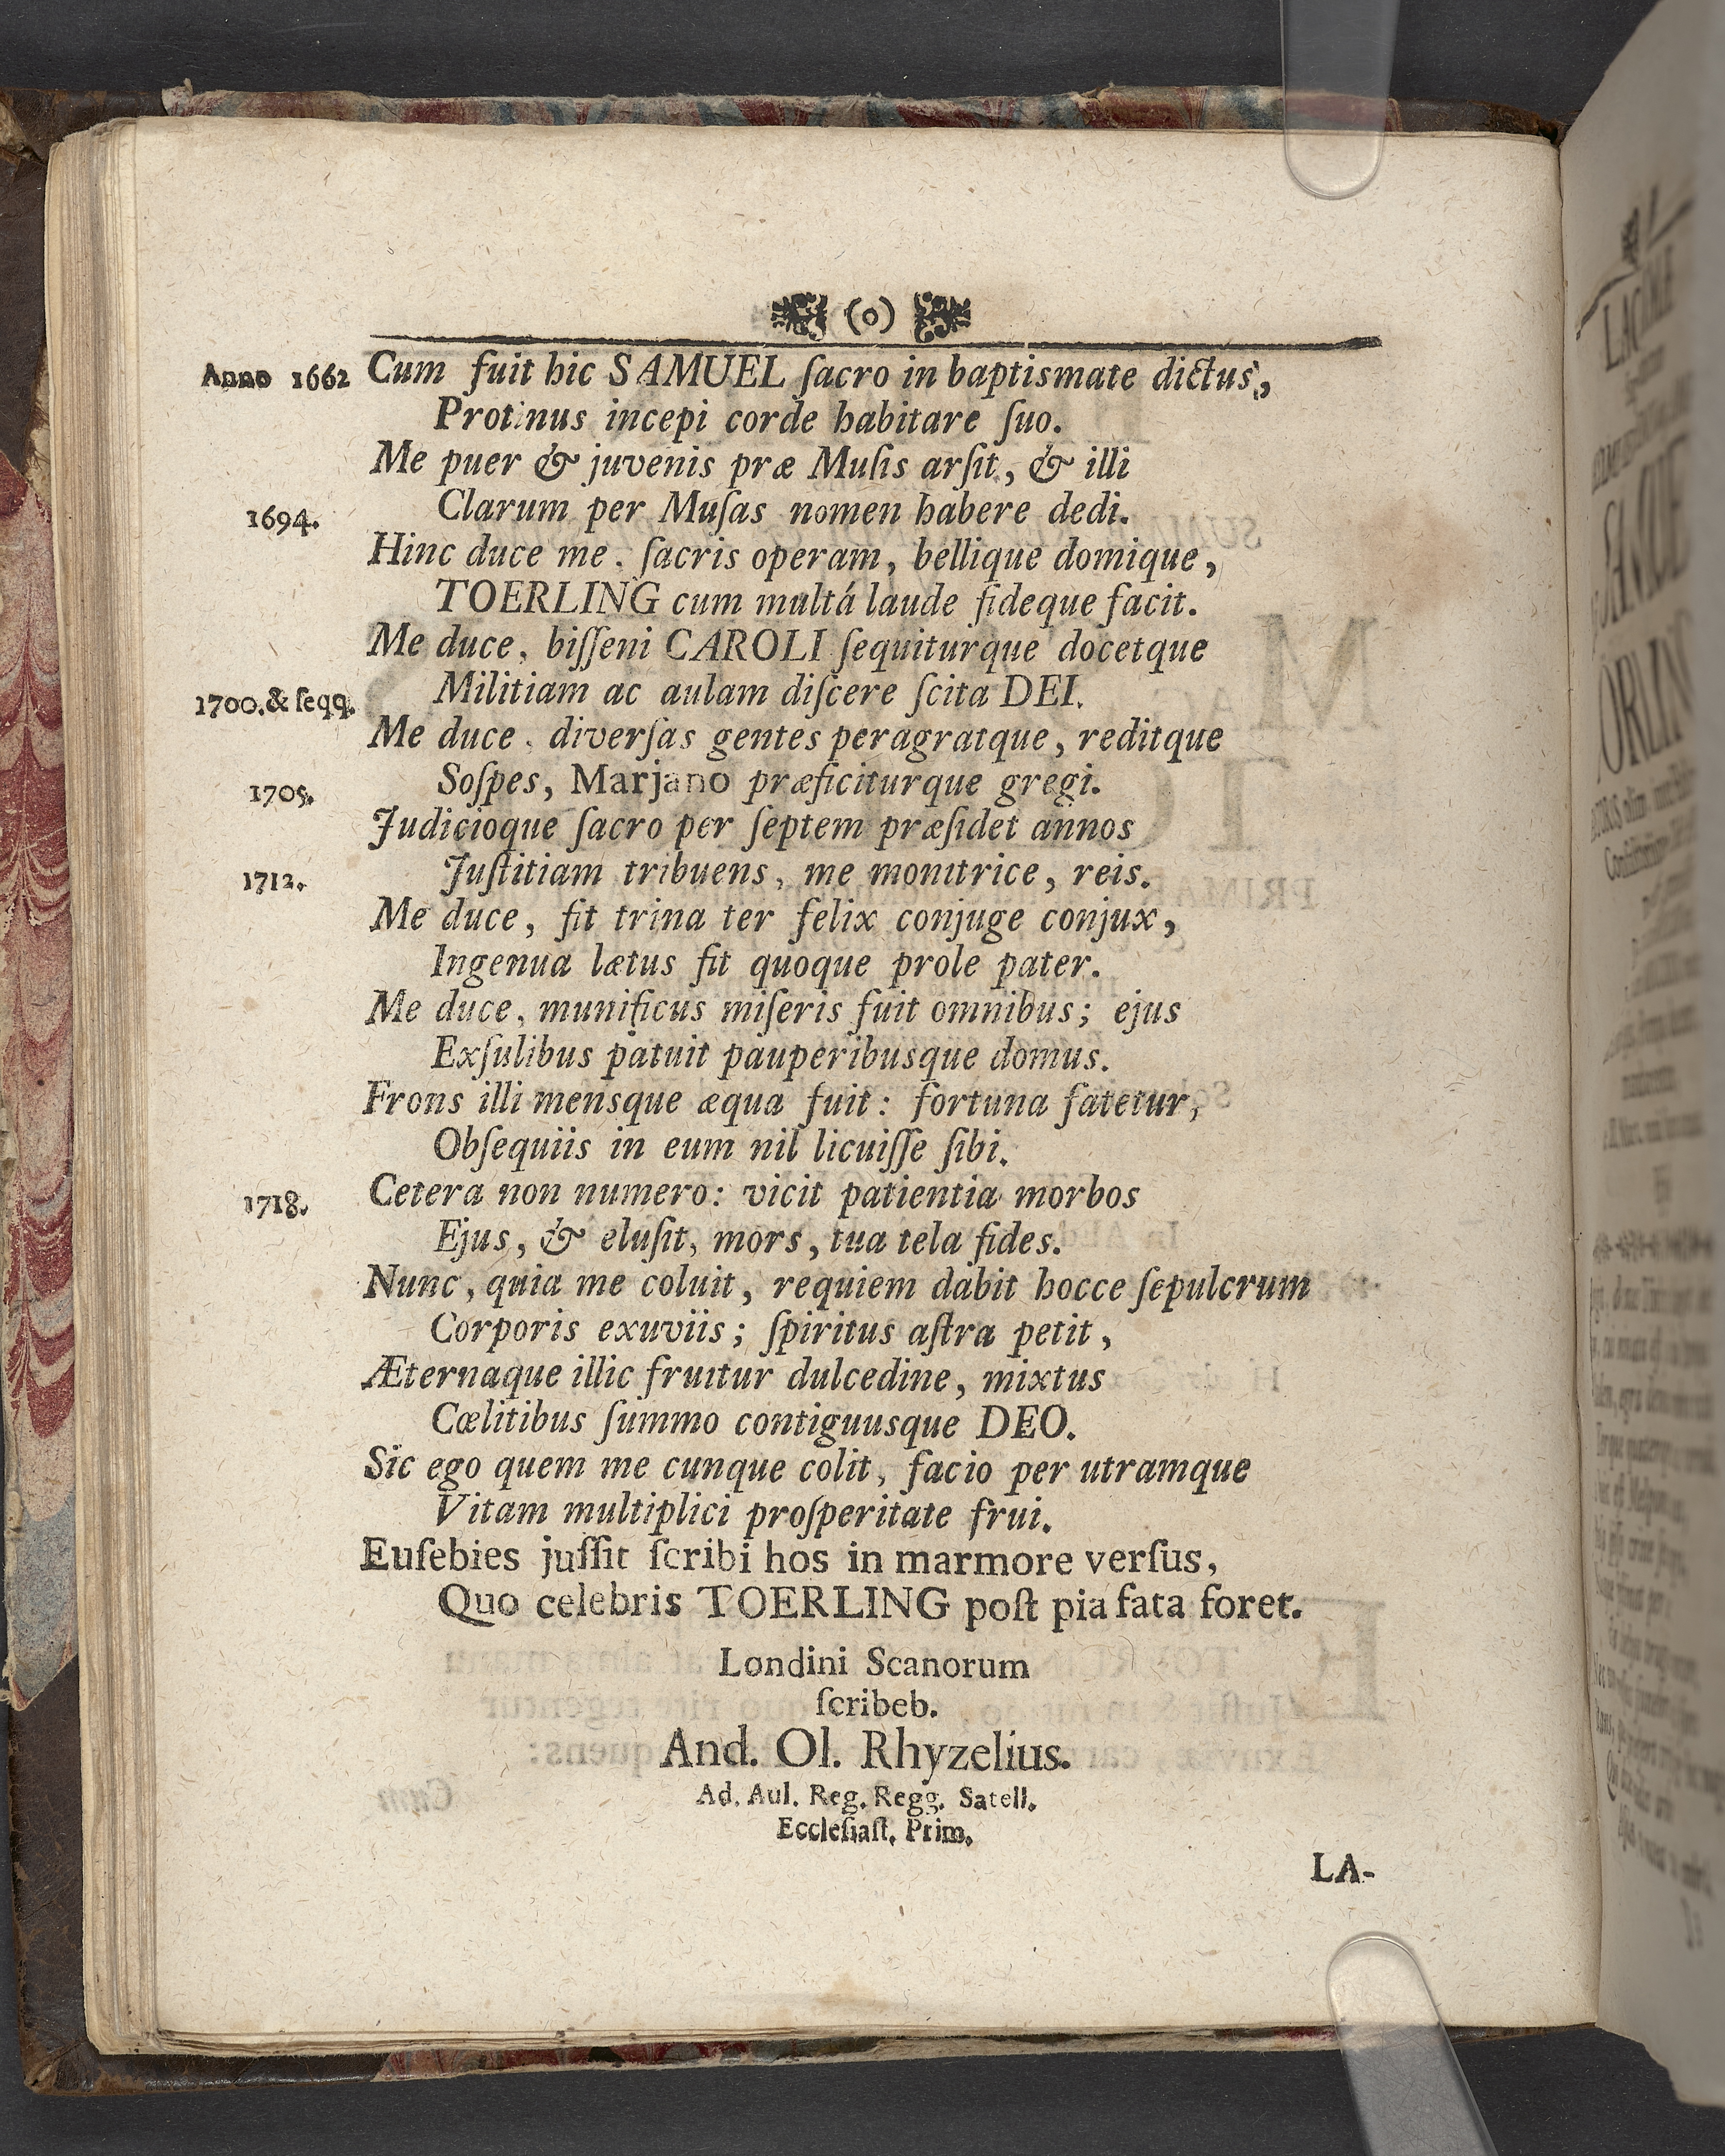 (o)
Anno 1662 Cum fuit hic SAMUEL ſacro in baptismate dictus,
Protinus incepi corde habitare ſuo.
Me puer & juvenis præ Muſis arſit, & illi
1694. Clarum per Muſas nomen habere dedi.
Hinc duce me, ſacris operam, bellique domique,
TOERLING cum multá laude fideque facit.
Me duce, biſſeni CAROLI ſequiturque docetque
1700.& ſeqq. Militiam ac aulam diſcere ſcita DEI.
Me duce, diverſas gentes peragratque, reditque
1705. Soſpes, Marjano præficiturque gregi.
Judicioque ſacro per ſeptem præſidet annos
1712. Juſtitiam tribuens, me monitrice, reis.
Me duce, fit trina ter felix conjuge conjux,
Ingenua lætus fit quoque prole pater.
Me duce, munificus miſeris fuit omnibus; ejus
Exſulibus patuit pauperibusque domus.
Frons illi mensque æqua fuit: fortuna fatetur,
Obſequiis in eum nil licuiſſe ſibi.
1718. Cetera non numero: vicit patientia morbos
Ejus, & eluſit, mors, tua tela fides.
Nunc, quia me coluit, requiem dabit hocce ſepulcrum
Corporis exuviis; ſpiritus aſtra petit,
Æternaque illic fruitur dulcedine, mixtus
Cœlitibus ſummo contiguusque DEO.
Sic ego quem me cunque colit, facio per utramque
Vitam multiplici proſperitate frui.
Euſebies juſſit ſcribi hos in marmore verſus,
Quo celebris TOERLING poſt pia fata foret.
Londini Scanorum
ſcribeb.
And. Ol. Rhyzelius.
Ad. Aul. Reg. Regg. Satell.
Eccleſiaſt. Prim.
LA-